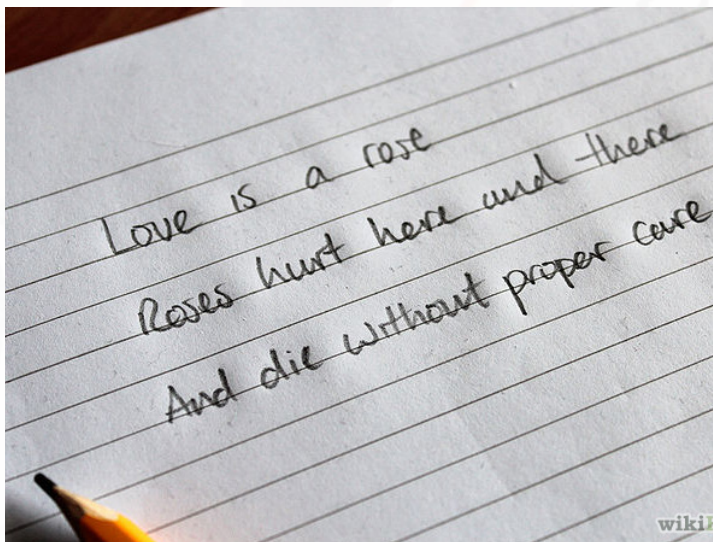 Love is a rose
Roses hurt here and there
And die without proper care
wiki